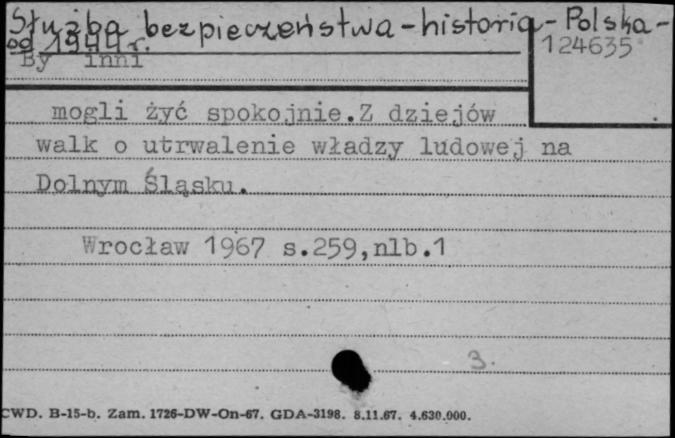 Służba bezpieczeństwa - historia - Polska -
od 1944 r.
124635
By inni
mogli żyć spokojnie. Z dziejów
walk o utrwalenie władzy ludowej na
Dolnym Śląsku.
Wrocław 1967 s.259,nlb.1
3.
CWD. B-15-b. Zam. 1726-DW-On-67. GDA-3198. 8.11.67. 4.630.000.